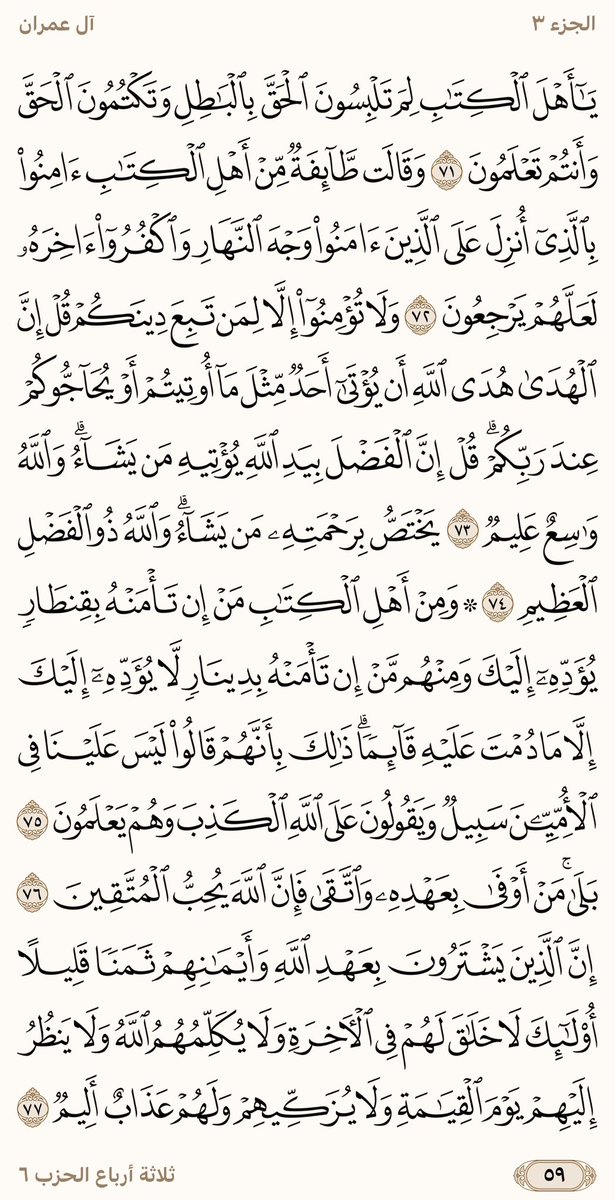 الجزء ٣ آل عمران
يَٰٓأَهۡلَ ٱلۡكِتَٰبِ لِمَ تَلۡبِسُونَ ٱلۡحَقَّ بِٱلۡبَٰطِلِ وَتَكۡتُمُونَ ٱلۡحَقَّ
وَأَنتُمۡ تَعۡلَمُونَ ٧١ وَقَالَت طَّآئِفَةٞ مِّنۡ أَهۡلِ ٱلۡكِتَٰبِ ءَامِنُواْ
بِٱلَّذِيٓ أُنزِلَ عَلَى ٱلَّذِينَ ءَامَنُواْ وَجۡهَ ٱلنَّهَارِ وَٱكۡفُرُوٓاْ ءَاخِرَهُۥ
لَعَلَّهُمۡ يَرۡجِعُونَ ٧٢ وَلَا تُؤۡمِنُوٓاْ إِلَّا لِمَن تَبِعَ دِينَكُمۡ قُلۡ إِنَّ
ٱلۡهُدَىٰ هُدَى ٱللَّهِ أَن يُؤۡتَىٰٓ أَحَدٞ مِّثۡلَ مَآ أُوتِيتُمۡ أَوۡ يُحَآجُّوكُمۡ
عِندَ رَبِّكُمۡۗ قُلۡ إِنَّ ٱلۡفَضۡلَ بِيَدِ ٱللَّهِ يُؤۡتِيهِ مَن يَشَآءُۗ وَٱللَّهُ
وَٰسِعٌ عَلِيمٞ ٧٣ يَخۡتَصُّ بِرَحۡمَتِهِۦ مَن يَشَآءُۗ وَٱللَّهُ ذُو ٱلۡفَضۡلِ
ٱلۡعَظِيمِ ٧٤ ۞ وَمِنۡ أَهۡلِ ٱلۡكِتَٰبِ مَنۡ إِن تَأۡمَنۡهُ بِقِنطَارٖ
يُؤَدِّهِۦٓ إِلَيۡكَ وَمِنۡهُم مَّنۡ إِن تَأۡمَنۡهُ بِدِينَارٖ لَّا يُؤَدِّهِۦٓ إِلَيۡكَ
إِلَّا مَا دُمۡتَ عَلَيۡهِ قَآئِمٗاۗ ذَٰلِكَ بِأَنَّهُمۡ قَالُواْ لَيۡسَ عَلَيۡنَا فِي
ٱلۡأُمِّيِّـۧنَ سَبِيلٞ وَيَقُولُونَ عَلَى ٱللَّهِ ٱلۡكَذِبَ وَهُمۡ يَعۡلَمُونَ ٧٥
بَلَىٰۚ مَنۡ أَوۡفَىٰ بِعَهۡدِهِۦ وَٱتَّقَىٰ فَإِنَّ ٱللَّهَ يُحِبُّ ٱلۡمُتَّقِينَ ٧٦
إِنَّ ٱلَّذِينَ يَشۡتَرُونَ بِعَهۡدِ ٱللَّهِ وَأَيۡمَٰنِهِمۡ ثَمَنٗا قَلِيلًا
أُوْلَٰٓئِكَ لَا خَلَٰقَ لَهُمۡ فِي ٱلۡأٓخِرَةِ وَلَا يُكَلِّمُهُمُ ٱللَّهُ وَلَا يَنظُرُ
إِلَيۡهِمۡ يَوۡمَ ٱلۡقِيَٰمَةِ وَلَا يُزَكِّيهِمۡ وَلَهُمۡ عَذَابٌ أَلِيمٞ ٧٧
٥٩ ثلاثة أرباع الحزب ٦